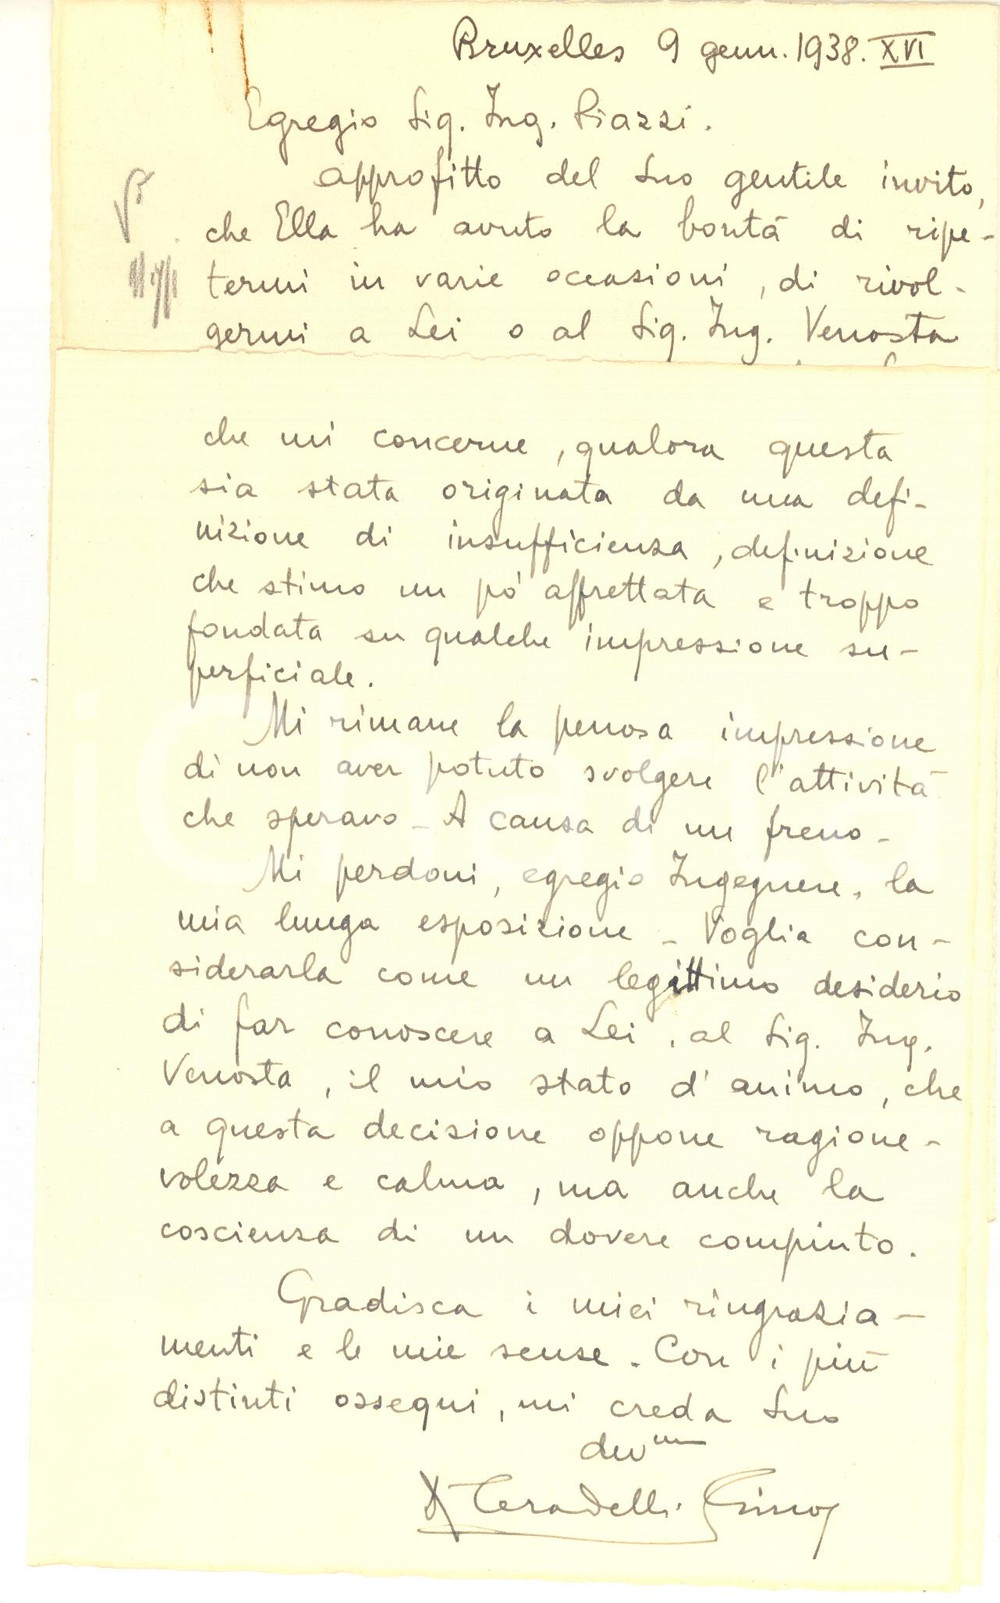 Bruxelles 9 genn. 1938. XVI
Egregio Sig. Ing. Piazzi.
approfitto del Suo gentile invito,
che Ella ha avuto la bontà di ripe-
termi in varie occasioni, di rivol-
germi a Lei o al Sig. Ing. Venosta
che mi concerne, qualora questa
sia stata originata da una defi-
nizione di insufficienza, definizione
che stimo un pò affrettata e troppo
fondata su qualche impressione su-
perficiale.
Mi rimane la penosa impressione
di non aver potuto svolgere l'attività
che speravo - A causa di un freno -
Mi perdoni, egregio Ingegnere, la
mia lunga esposizione - Voglia con-
siderarla come un legittimo desiderio
di far conoscere a Lei, al Sig. Ing.
Venosta, il mio stato d'animo, che
a questa decisione oppone ragione-
volezza e calma, ma anche la
coscienza di un dovere compiuto.
Gradisca i miei ringrazia-
menti e le mie scuse. Con i più
distinti ossequi, mi creda Suo
dev.mo
Ceradelli Gino